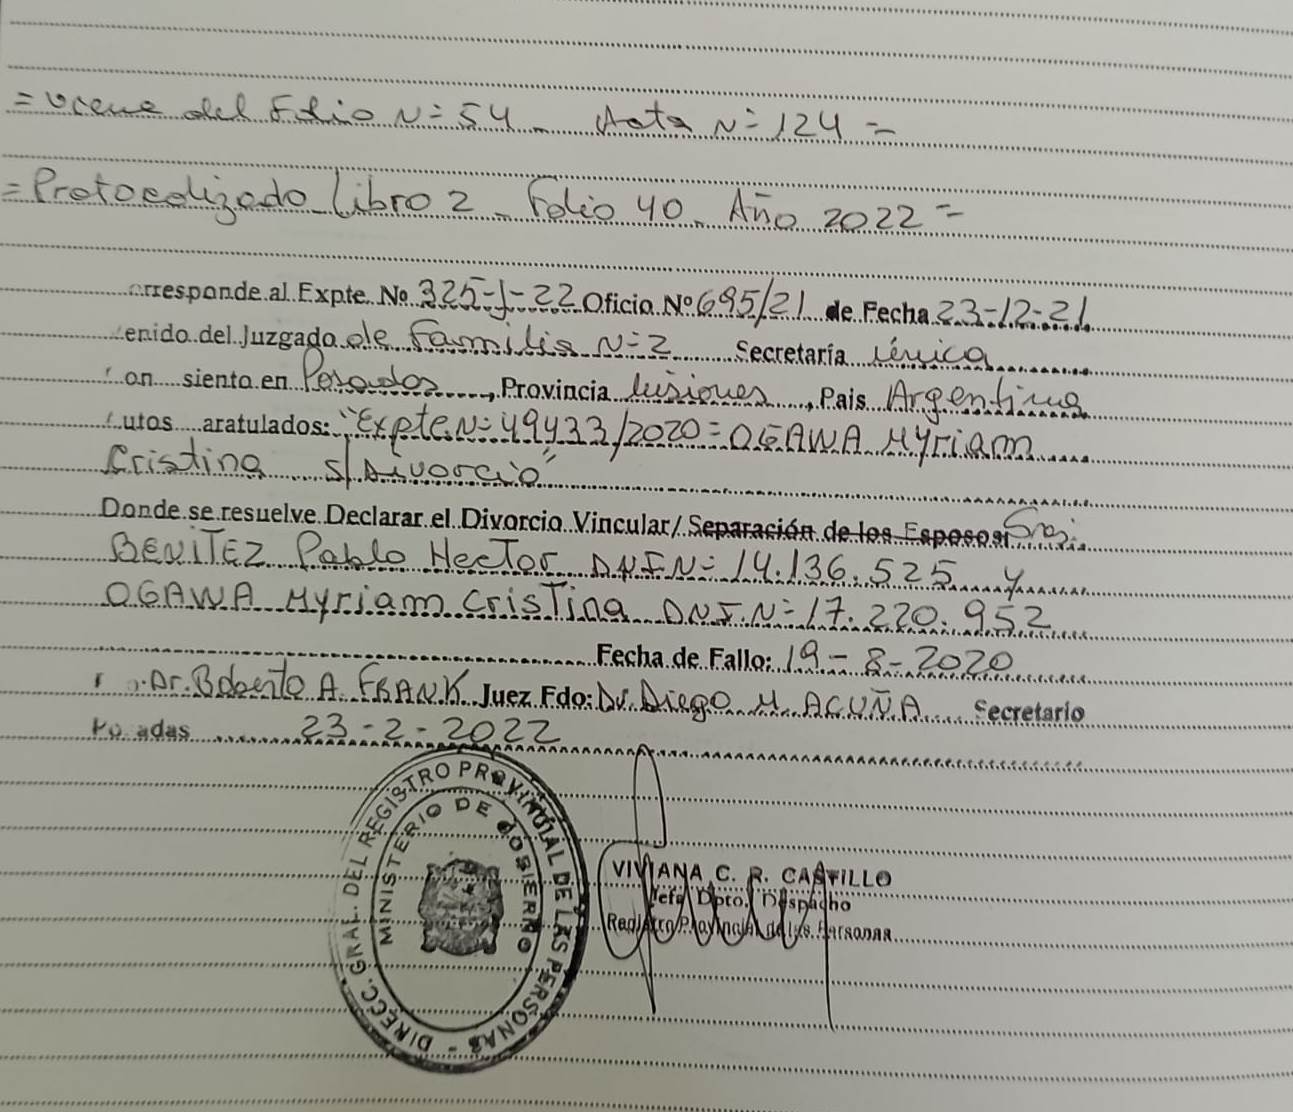 =viene del Folio N=54- Acta N=124=
=Protocolizado Libro 2- Folio 40- Año 2022=
orresponde al Expte. Nº 325-J-22 Oficio Nº 695/21 de Fecha 23-12-21
enido del Juzgado de Familia N=2 Secretaría única
on siento en Posadas, Provincia Misiones, Pais Argentina
utos aratulados: "Expte N=49433/2020=OGAWA Myriam
Cristina s/Divorcio"
Donde se resuelve Declarar el Divorcio Vincular/ Separación de los Esposos: Sres.
BENITEZ Pablo Hector DNI N=14.136.525 y
OGAWA Myriam Cristina DNI.N=17.220.952
Fecha de Fallo: 19-8-2020
Dr. Roberto A. FRANK Juez Fdo: Dr. Diego M. ACUÑA Secretario
Po adas 23-2-2022
DIRECC. GRAL. DEL REGISTRO PROVINCIAL DE LAS PERSONAS -
MINISTERIO DE GOBIERNO
VIVIANA C. R. CASTILLO
Jefe Dpto. Despacho
Registro Provincial de las Personas